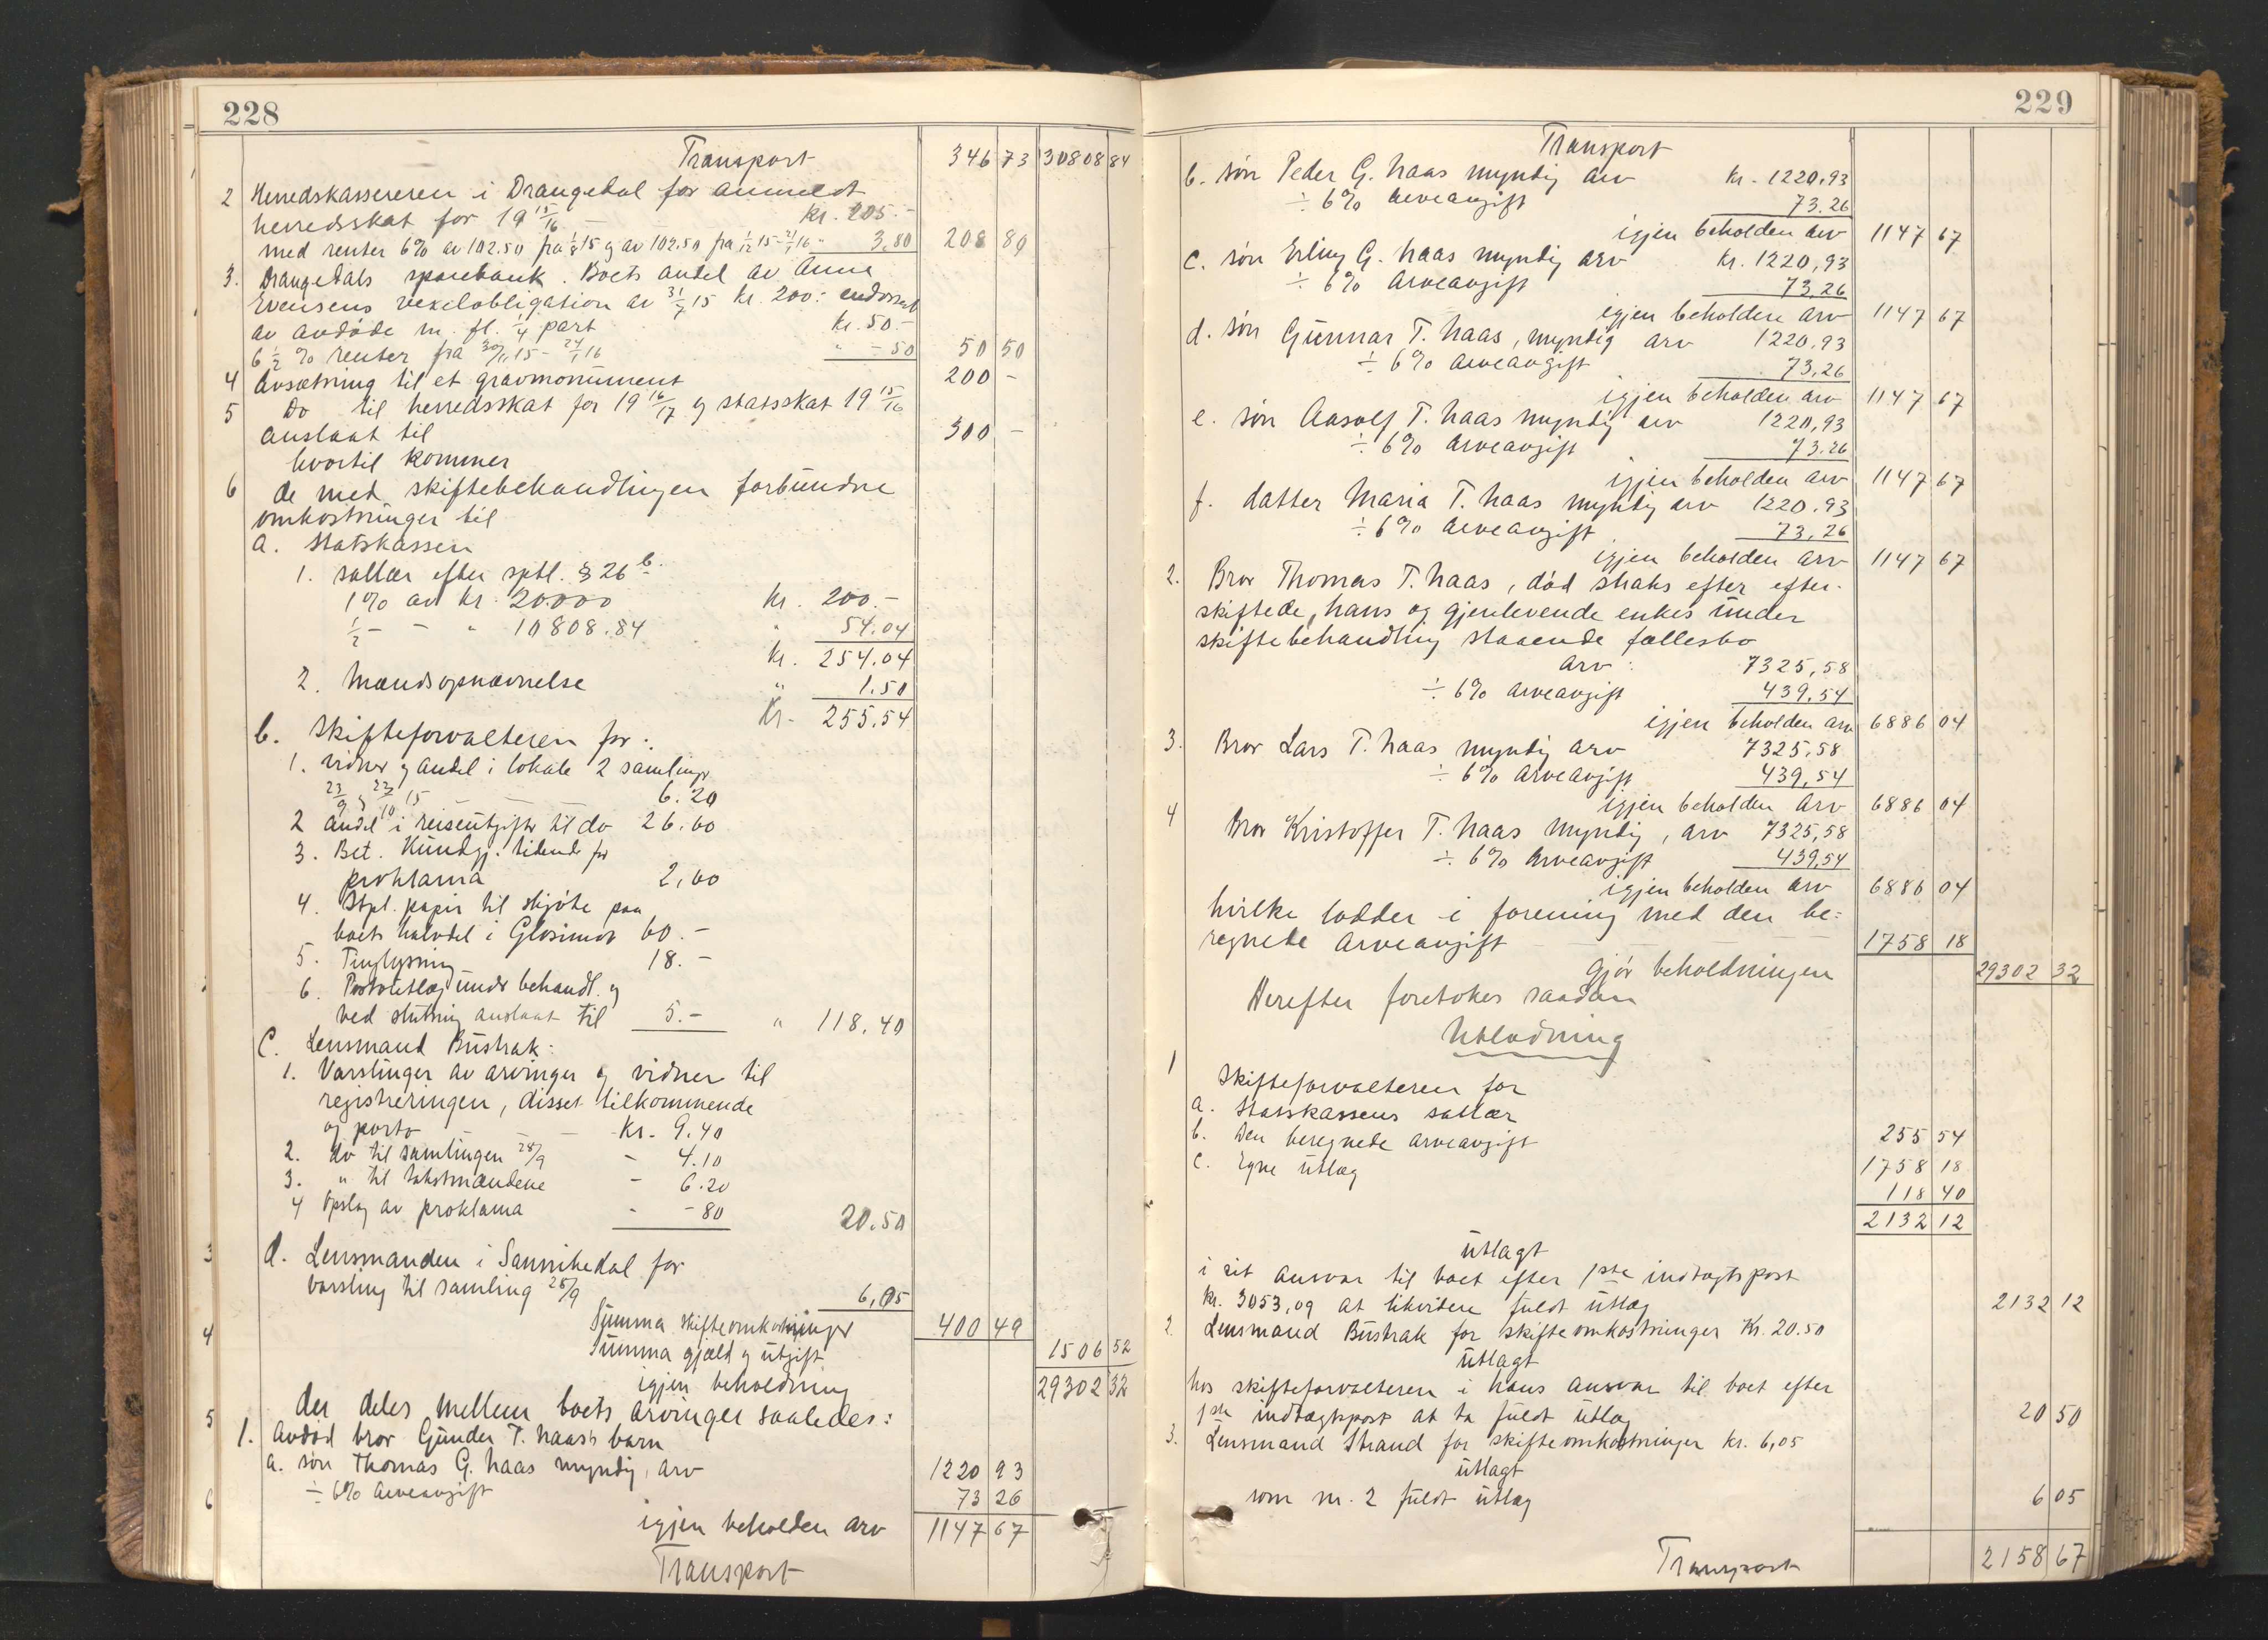 228
Transport 346 73 30808 84
2 Herredskassereren i Drangedal for anmeldt
herredsskat for 19 15/16 — kr. 205.-
med renter 6% av 102.50 fra 1/8 15 og av 102.50 fra 1/12 15 - 24/1 16 " 3,80 208 80
3. Drangedals sparebank. Boets andel av Anne
Evensens vexelobligation av 31/7 15 kr. 200:- endossert
av avdøde m. fl. 1/4 part kr. 50.-
6 1/2 % renter fra 30/11 15 - 24/1 16 " - 50 50 50
4 Avsætning til et gravmonument 200 -
5 Do til herredsskat for 19 16/17 og statsskat 19 15/16
anslaat til 300 -
hvortil kommer
6 de med skiftebehandlingen forbundne
omkostninger til
a. Statskassen
1. sallær efter sptl. § 26 b.
1% av kr. 20.000 kr. 200.-
1/2 - - " 10808.84 " 54.04
kr. 254.04
2. Mandsopnævnelse " 1.50
Kr. 255.54
b. Skifteforvalteren for:
1. vidner og andel i lokale 2 samlinger
23/9 og 23/10 15 — 6.20
2 Andel i reiseutgifter til do 26.60
3. Bet. Kundgj. tidende for
proklama 2,60
4. Stpl. papir til skjøte paa
boets halvdel i Glosimot 60.-
5. Tinglysning 18.-
6. Portoutlæg under behandl. og
ved slutning anslaat til 5.- " 118,40
C. Lensmand Bustrak:
1. Varslinger av arvinger og vidner til
registreringen, disses tilkommende
og porto — kr. 9.40
2. do til samlingen 28/9 - 4.10
3. " til takstmændene - 6.20
4 Opslag av proklama - - 80 20.50
d. Lensmanden i Sannikedal for
varsling til samling 28/9 6,05
Summa skifteomkostninger 400 49
Summa gjæld og utgift 1506 52
igjen beholdning 29302 32
der deles mellem boets arvinger saaledes:
1. Avdød bror Gunder T. Haas's barn
a. søn Thomas G. Haas myndig, arv 1220 93
÷ 6% Arveavgift 73 26
igjen beholden arv 1147 67
Transport
229
Transport
b. søn Peder G. Haas myndig arv kr. 1220,93
÷ 6% Arveavgift 73.26
igjen beholden arv 1147 67
c. søn Erling G. Haas myndig arv kr. 1220,93
÷ 6% Arveavgift 73,26
igjen beholden arv 1147 67
d. søn Gunnar T. Haas, myndig arv 1220,93
÷ 6% arveavgift 73,26
igjen beholden arv 1147 67
e. søn Aasolf T. Haas myndig arv 1220,93
÷ 6% arveavgift 73.26
igjen beholden arv 1147 67
f. datter Maria T. Haas myndig arv 1220.93
÷ 6% arveavgift 73,26
igjen beholden arv 1147 67
2. Bror Thomas T. Haas, død straks efter efter-
skiftede, hans og gjenlevende enkes under
skiftebehandling staaende fællesbo
arv: 7325,58
÷ 6% arveavgift 439,54
igjen beholden arv 6886 04
3. Bror Lars T. Haas myndig arv 7325,58
÷ 6% arveavgift 439,54
igjen beholden arv 6886 04
4 Bror Kristoffer T. Haas myndig, arv 7325,58
÷ 6% Arveavgift 439,54
igjen beholden arv 6886 04
hvilke lodder i forening med den be-
regnede arveavgift 1758 18
gjør beholdningen 29302 32
Herefter foretokes saadan
Utlodning
1 Skifteforvalteren for
a. Statskassens sallær 255 54
b. Den beregnede arveavgift 1758 18
c. Egne utlæg 118 40
2132 12
utlagt
i sit ansvar til boet efter 1ste indtægtspost
kr. 3053,09 at likvidere fuldt utlæg 2132 12
2. Lensmand Bustrak for skifteomkostninger kr. 20.50
utlagt
hos skifteforvalteren i hans ansvar til boet efter
1ste indtægtspost at ta fuldt utlæg 20 50
3. Lensmand Strand for skifteomkostninger kr. 6,05
utlagt
som nr. 2 fuldt utlæg 6 05
Transport 2158 67